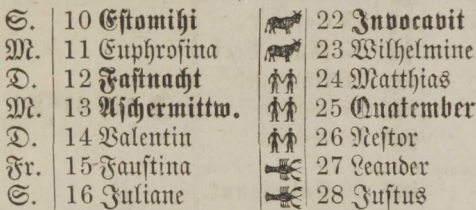 S. 10 Estomihi 22 Invocavit
M. 11 Euphrosina 23 Wilhelmine
D. 12 Fastnacht 24 Matthias
M. 13 Aschermittw. 25 Quatember
D. 14 Valentin 26 Nestor
Fr. 15 Faustina 27 Leander
S. 16 Juliane 28 Justus